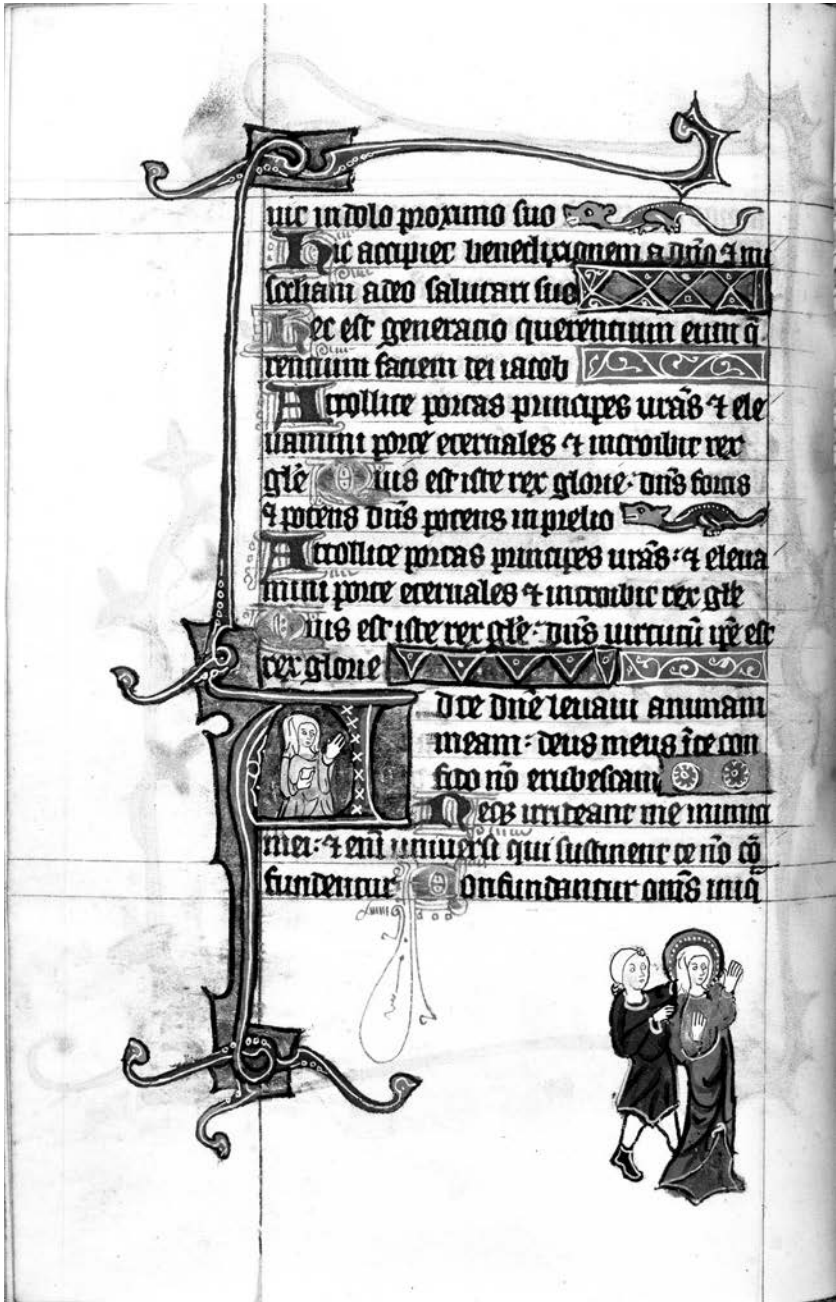 uit in dolo proximo suo
Hic accipiet benedixionem a dño ⁊ mi
scđiam a deo salutari suo
Hec est generacio querencium eum q̃
rencium faciem dei iacob
Attollite portas principes urãs ⁊ ele
vamini porte eternales ⁊ introibit rex
glẽ Quis est iste rex glorie· dñs fortis
⁊ potens dñs potens in prelio
Attollite portas principes urãs: ⁊ eleva
mini porte eternales ⁊ introibit rex glẽ
Quis est iste rex glẽ· dñs uirtutũ ip̃e est
rex glorie
Ad te dñe levavi animam
meam: deus meus ĩ te con
fido nõ erubescam
Neqꝫ irrideant me inimici
mei: ⁊ eñi universi qui sustinent te nõ cõ
fundentur Confundantur oñis iniq̃